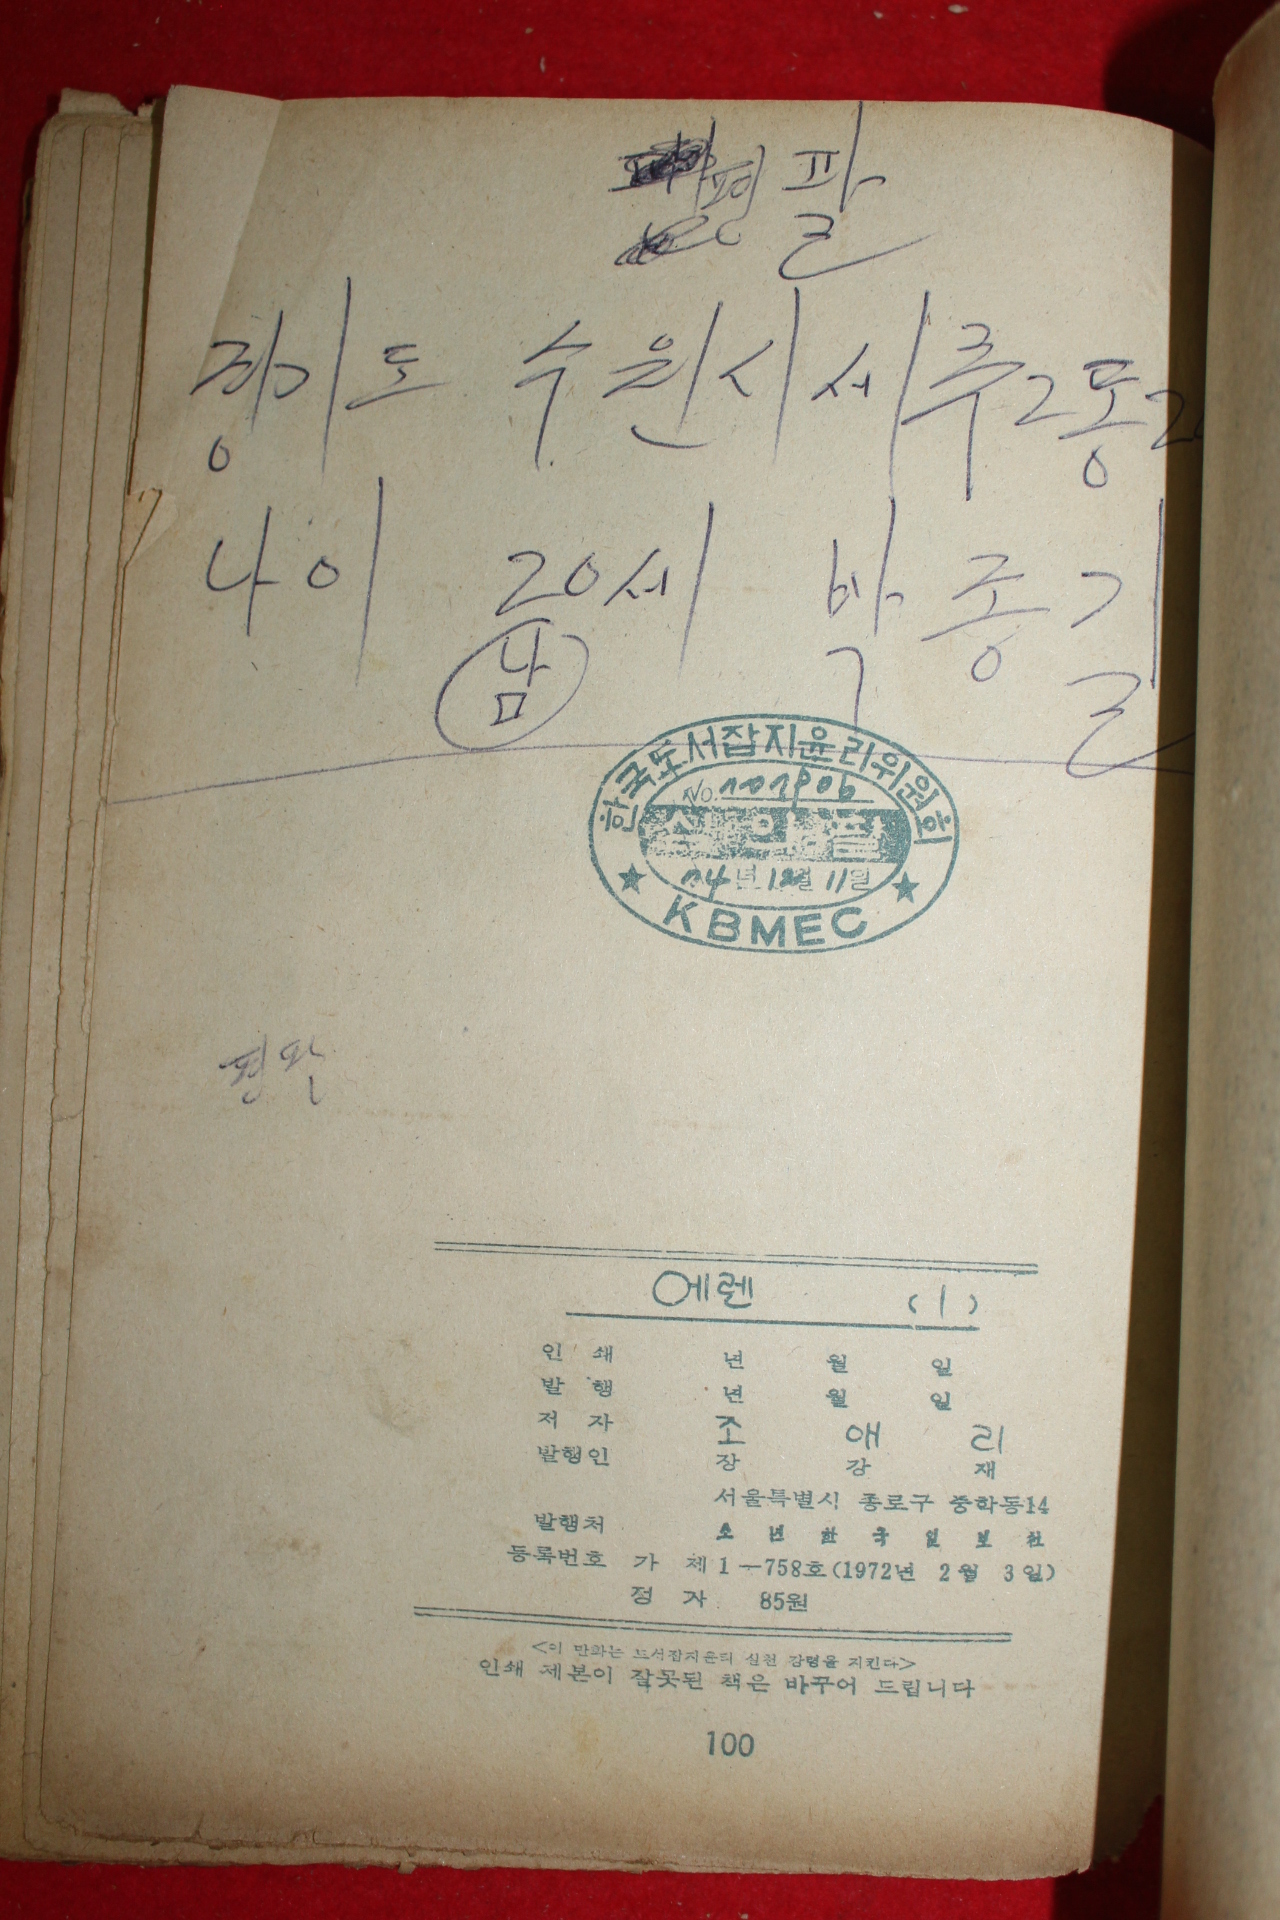 평 팔
경기도 수원시 세류2동 2
나이 20세 박종길
남
한국도서잡지윤리위원회
No.
74년 12월 11일
KBMEC
평판
에렌 (1)
인 쇄 년 월 일
발 행 년 월 일
저 자 조 애 리
발행인 장 강 재
서울특별시 종로구 중학동14
발행처 소 년 한 국 일 보 社
등록번호 가 제1－758호(1972년 2월 3일)
정 가 85원
<이 만화는 도서잡지윤리 실천 강령을 지킨다>
인쇄 제본이 잘못된 책은 바꾸어 드립니다
100